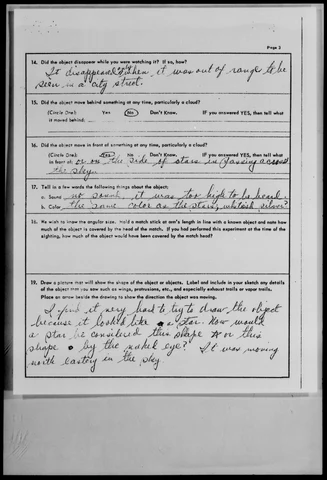 Page 3
14. Did the object disappear while you were watching it? If so, how?
It disappeared when, it was out of range to be
seen in a city street.
15. Did the object move behind something at any time, particularly a cloud?
(Circle One): Yes No Don't Know. IF you answered YES, then tell what
it moved behind:
16. Did the object move in front of something at any time, particularly a cloud?
(Circle One): Yes No Don't Know. IF you answered YES, then tell what
in front of: or on the side of stars in passing across
the sky.
17. Tell in a few words the following things about the object:
a. Sound no sound, it was too high to be heard.
b. Color the same color as the stars, whitish silver?
18. We wish to know the angular size. Hold a match stick at arm's length in line with a known object and note how
much of the object is covered by the head of the match. If you had performed this experiment at the time of the
sighting, how much of the object would have been covered by the match head?
19. Draw a picture that will show the shape of the object or objects. Label and include in your sketch any details
of the object that you saw such as wings, protrusions, etc., and especially exhaust trails or vapor trails.
Place an arrow beside the drawing to show the direction the object was moving.
I find it very hard to try to draw the object
because it looked like a star. How would
a star be considered this shape or this
shape by the naked eye? It was moving
north eastery in the sky.